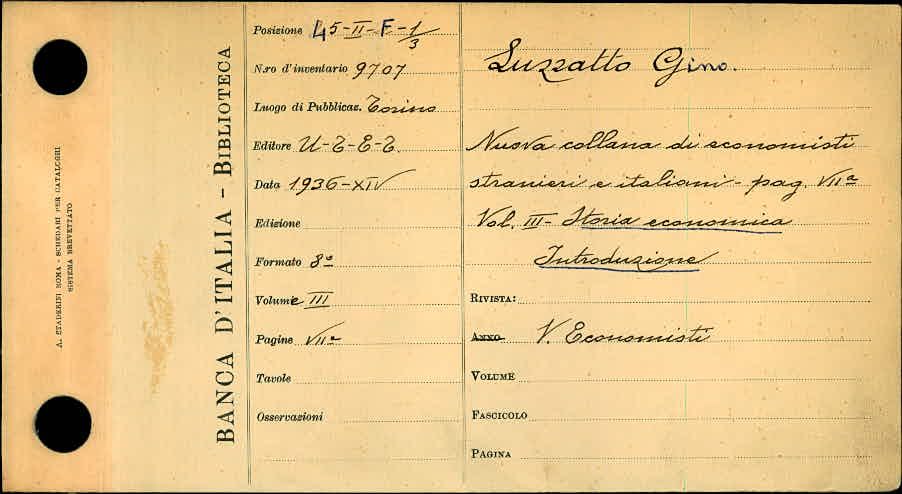 A. STADERINI ROMA - SCHEDARI PER CATALOGHI
SISTEMA BREVETTATO
BANCA D'ITALIA - BIBLIOTECA
Posizione 45-II-F-1/3
N.ro d'inventario 9707
Luogo di Pubblicaz. Torino
Editore U-T-E-T.
Data 1936-XIV
Edizione
Formato 8º
Volume III
Pagine VIIª
Tavole
Osservazioni
Luzzatto Gino.
Nuova collana di economisti
stranieri e italiani - pag. VIIª
Vol. III - Storia economica
Introduzione
RIVISTA:
ANNO V. Economisti
VOLUME
FASCICOLO
PAGINA